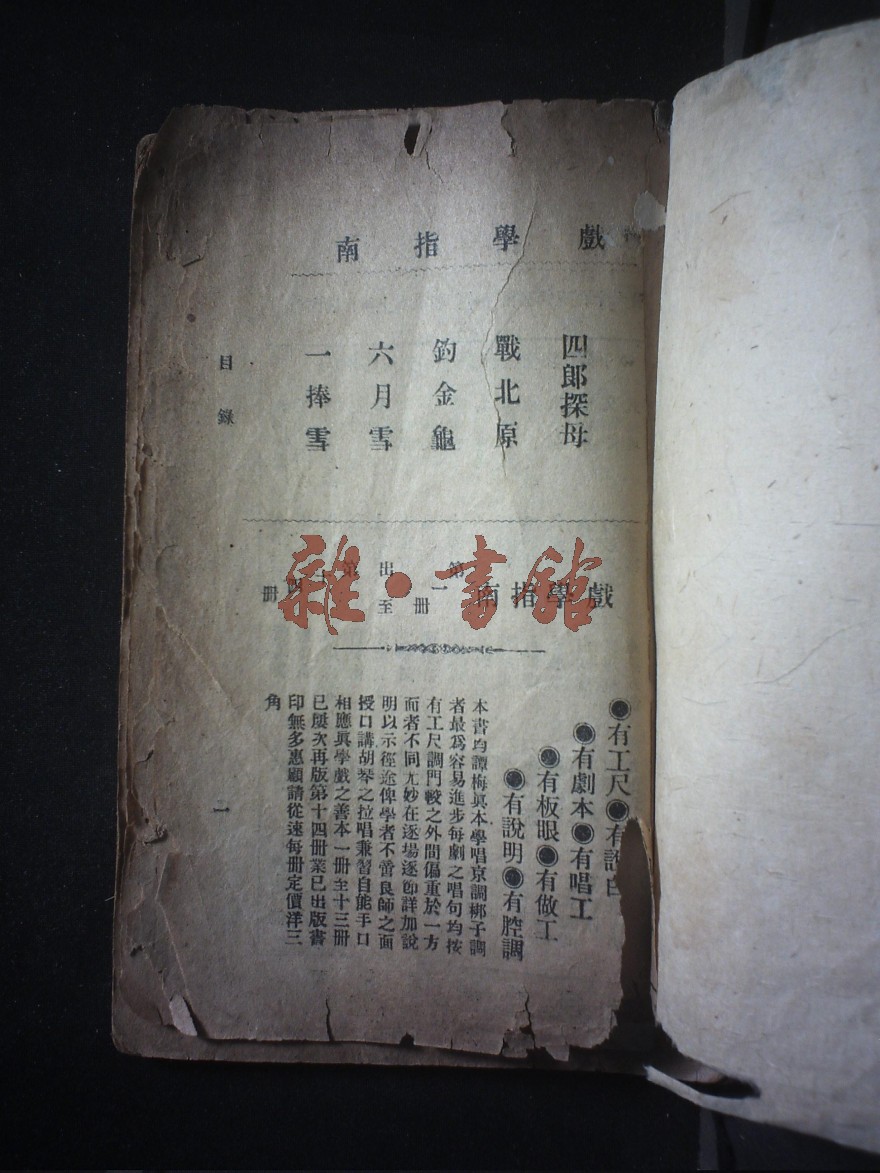 戲學指南
四郎探母
戰北原
釣金龜
六月雪
一捧雪
目錄
戲學指南
第一冊
出至
第十四冊
雜·書館
●有工尺●有說白
●有劇本●有唱工
●有板眼●有做工
●有說明●有腔調
本書均譚梅真本學唱京調梆子調
者最爲容易進步每劇之唱句均按
有工尺調門較之外間偏重於一方
而者不同尤妙在逐場逐節詳加說
明以示徑途俾學者不啻良師之面
授口講胡琴之拉唱兼習自能手口
相應眞學戲之善本一冊至十三冊
已屢次再版第十四冊業已出版書
印無多惠顧請從速每冊定價洋三
角
一